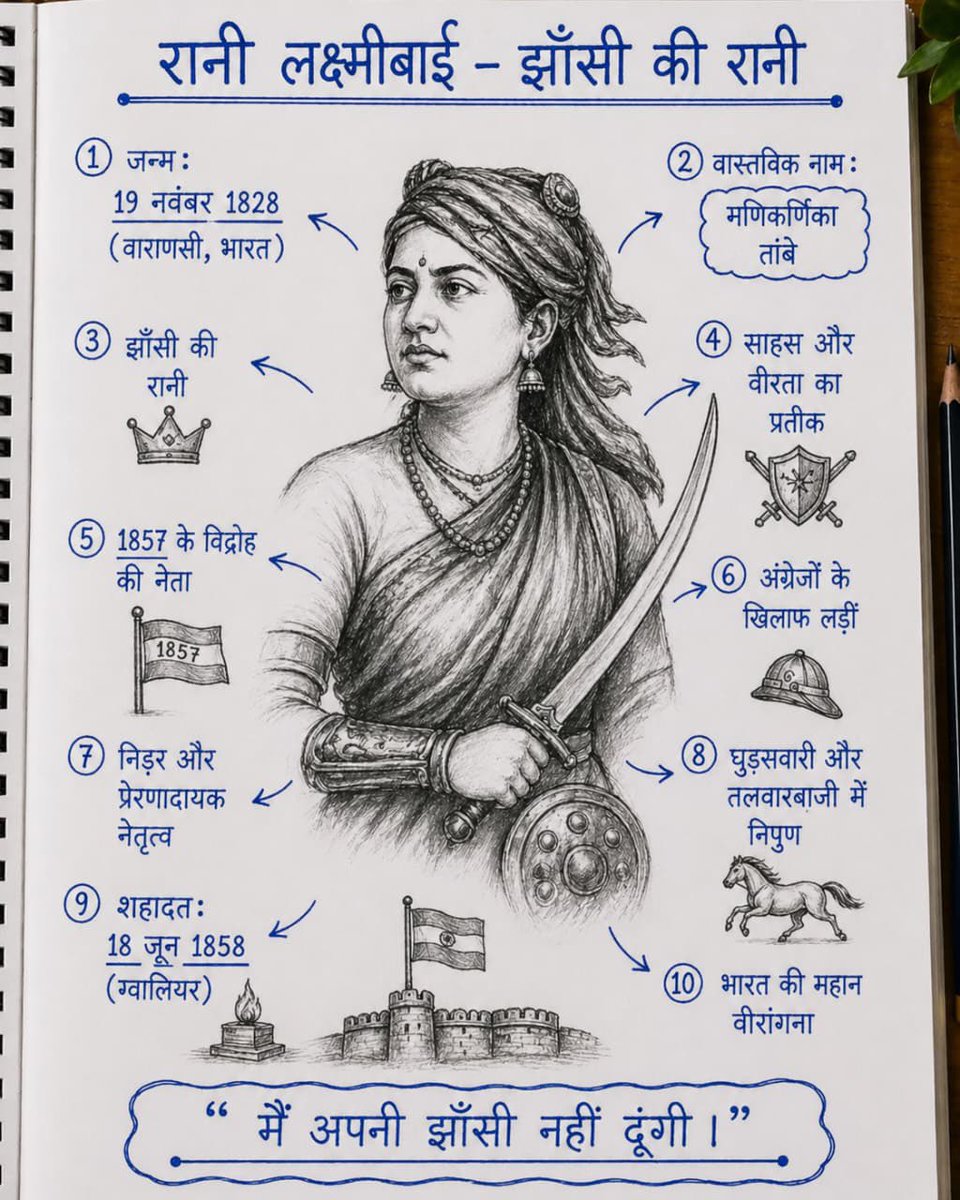 रानी लक्ष्मीबाई – झाँसी की रानी
① जन्म :
19 नवंबर 1828
(वाराणसी, भारत)
② वास्तविक नाम :
मणिकर्णिका
तांबे
③ झाँसी की
रानी
④ साहस और
वीरता का
प्रतीक
⑤ 1857 के विद्रोह
की नेता
1857
⑥ अंग्रेजों के
खिलाफ लड़ीं
⑦ निड़र और
प्रेरणादायक
नेतृत्व
⑧ घुड़सवारी और
तलवारबाजी में
निपुण
⑨ शहादत :
18 जून 1858
(ग्वालियर)
⑩ भारत की महान
वीरांगना
“ मैं अपनी झाँसी नहीं दूंगी । ”